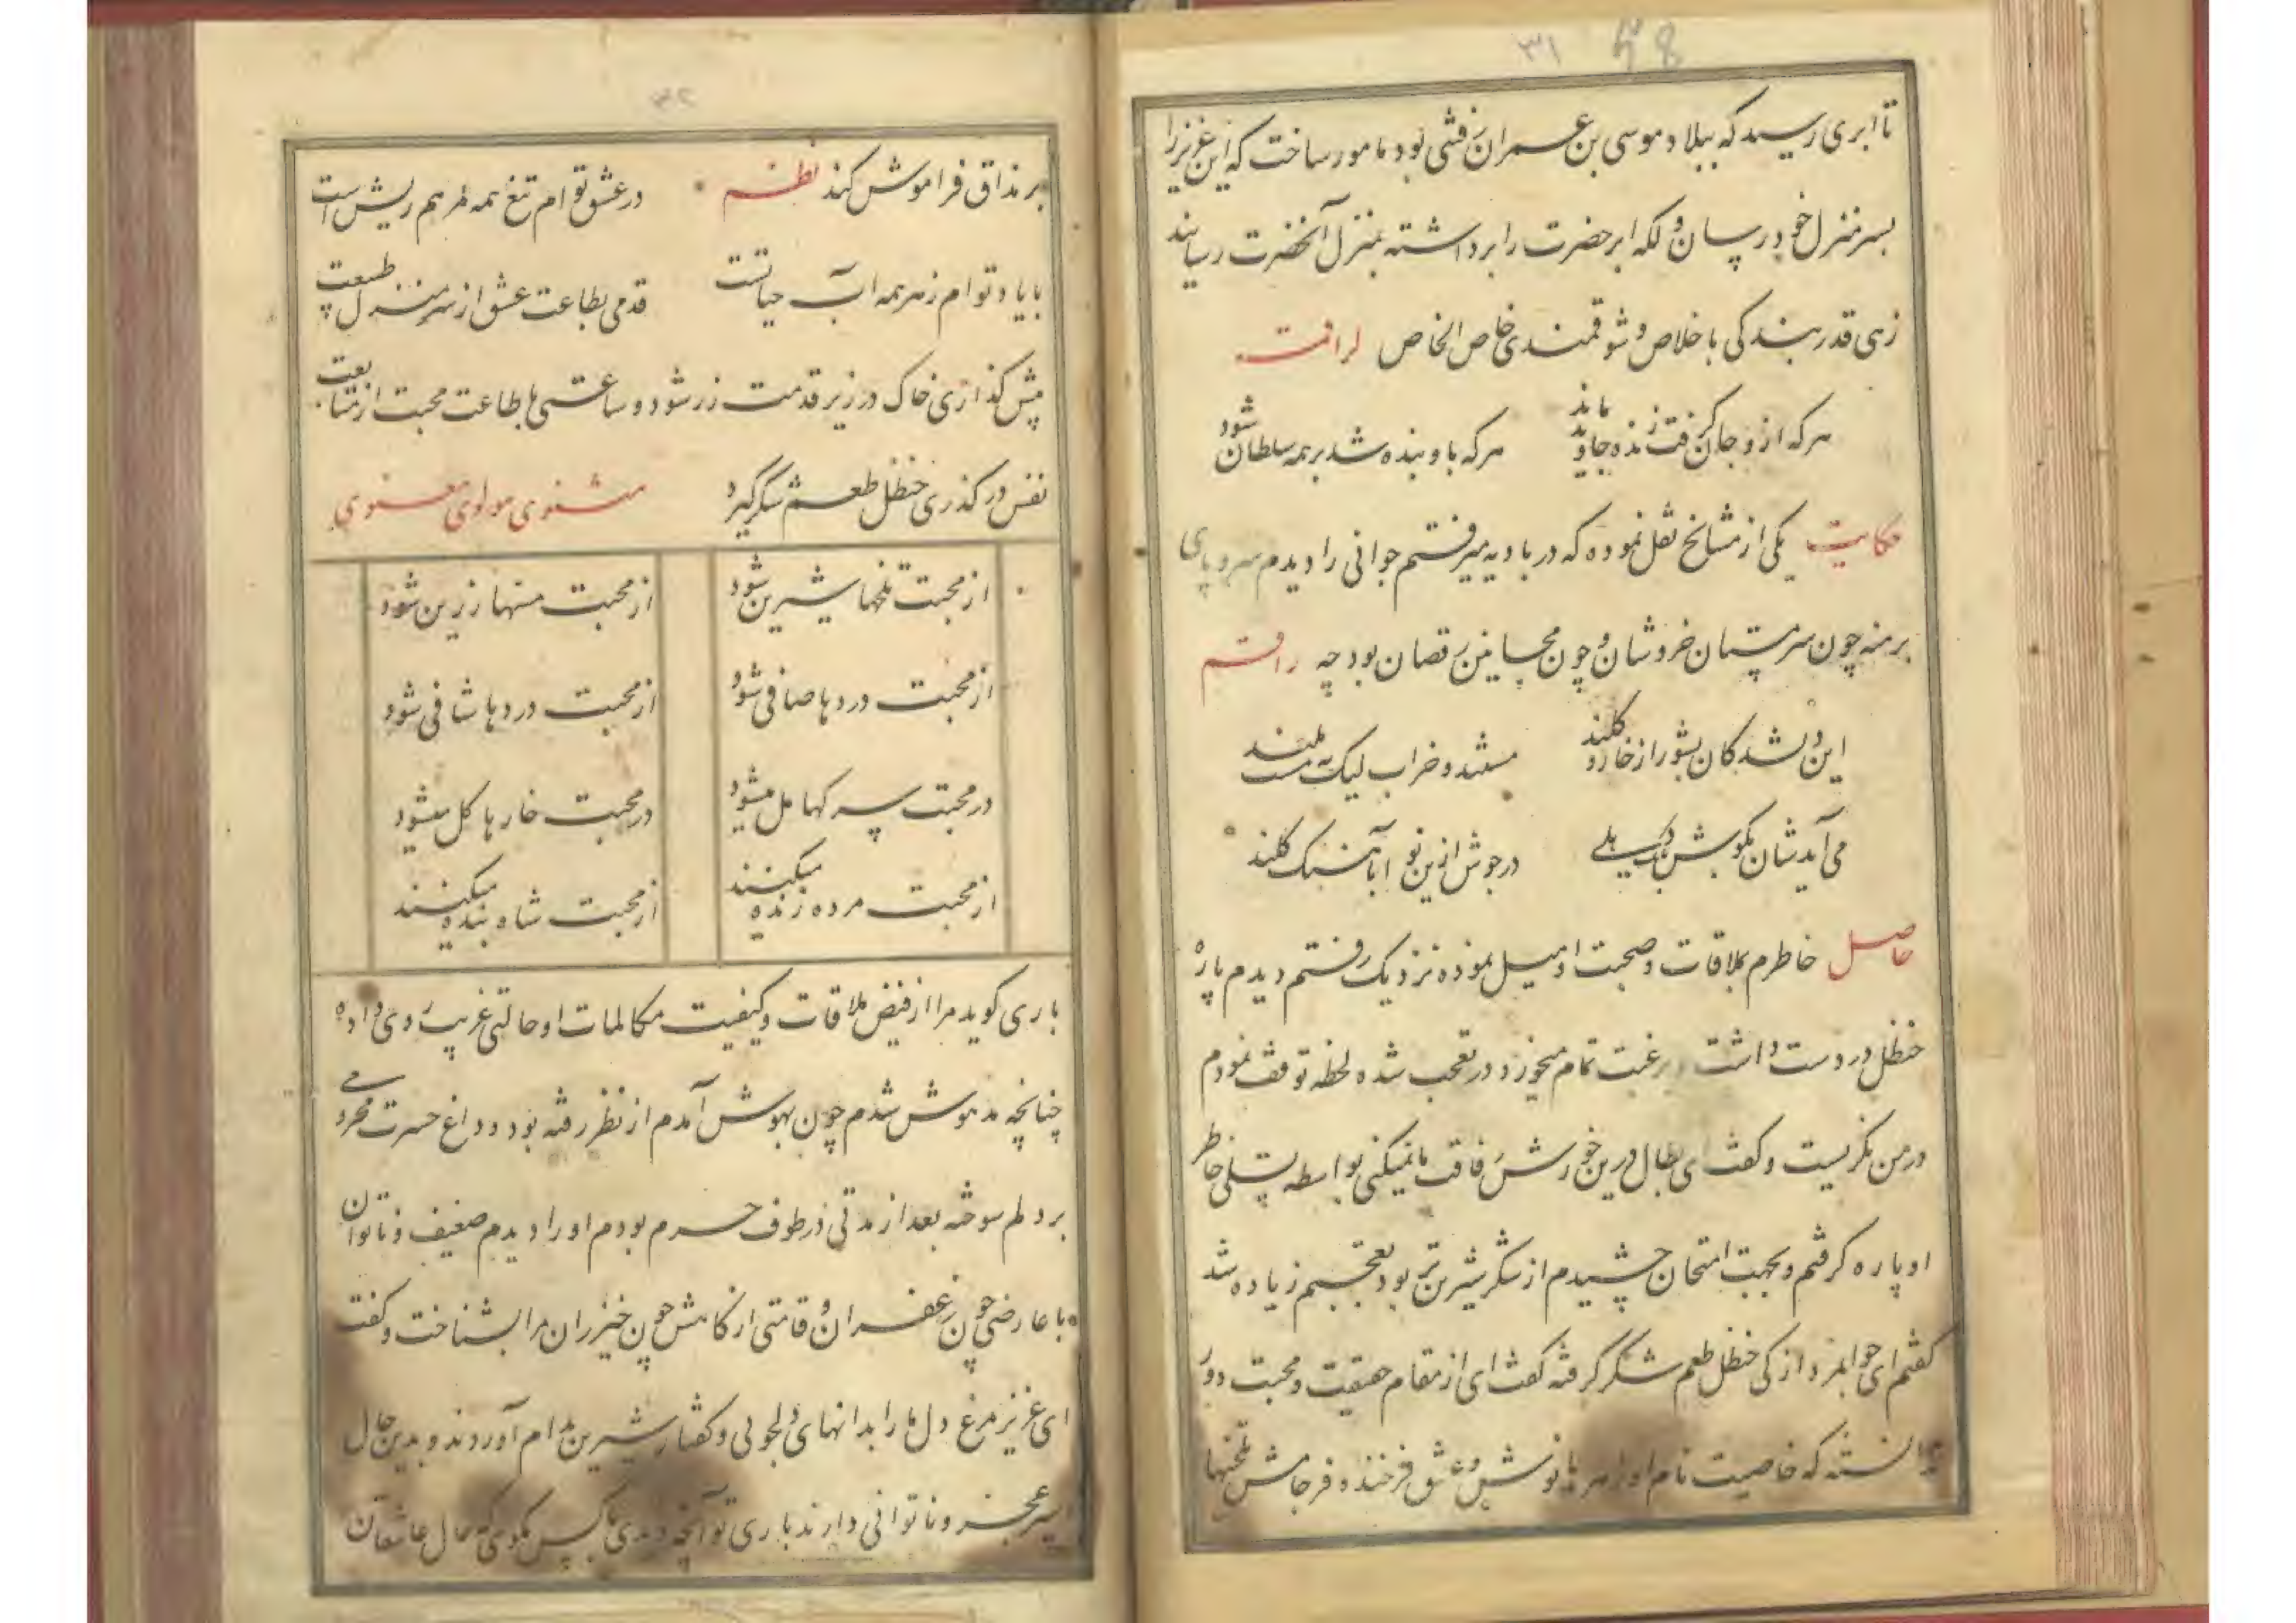 ۳۱
تا ابری رسید که ببلاد موسی بن عمران رفتنی بود مامور ساخت که این عزیز را
بسر منزل خود رسان ولکه ابر حضرت را برداشته بمنزل آنحضرت رسانید
زهی قدر بندگی با خلاص و شوقمندی خاص الخاص لراقمه
هرکه ازو جان گرفت زنده جاوید ماند هرکه باو بنده شد بر همه سلطان شود
حکایت یکی از مشایخ نقل نموده که در بادیه میرفتم جوانی را دیدم سر و پای
برهنه چون سرمستان خروشان و چون مجانین رقصان بود چه راقم
این شدکان بشور از خار و مستند و خراب لیک همت بلند
می آیدشان بگوش بانک بلی در جوش ازین نو آهنک
حاصل خاطرم بملاقات و صحبت او میل نموده نزدیک رفتم دیدم پاره
حنظل در دست داشت برغبت تمام میخورد در تعجب شده لحظه توقف نمودم
در من نگریست و گفت ای بطال درین خورش رفاقت ما نمیکنی بواسطه تسلی خاطر
او پاره گرفتم و بجهت امتحان چشیدم از شکر شیرین تر بود تعجبم زیاده شد
گفتم ای جوانمرد از کی حنظل طعم شکر گرفته گفت ای از مقام حقیقت و محبت دور
ندانسته که خاصیت نام او زهر را نوش و عشق فرخنده فرجامش تلخیها
۳۲
بر مذاق فراموش کند نظم در عشق توام تیغ همه مرهم ریش است
با یاد توام زهر همه آب حیاتست قدمی بطاعت عشق از سر منزل طبیعت
پیش گذاری خاک در زیر قدمت زر شود و ساعتی با طاعت محبت از متابعت
نفس در گذری حنظل طعم شکر گیرد مثنوی مولوی معنوی
از محبت تلخها شیرین شود از محبت مسها زرین شود
از محبت دردها صافی شود از محبت دردها شافی شود
در محبت سرکها مل میشود در محبت خارها گل میشود
از محبت مرده زنده میکنند از محبت شاه بنده میکنند
باری گوید مرا از فیض ملاقات و کیفیت مکالمات او حالتی غریب روی داده
چنانچه مدهوش شدم چون بهوش آمدم از نظر رفته بود و داغ حسرت محرومی
بر دلم سوخته بعد از مدتی در طوف حرم بودم او را دیدم ضعیف و ناتوان
با عارضی چون زعفران و قامتی از کاهش چون خیزران مرا بشناخت و گفت
ای عزیز مرغ دل ما را بدانهای دلجوئی و گفتار شیرین بدام آوردند و بدین حال
اسیر عجز و ناتوانی دارند باری تو آنچه دیدی بکس مگوی که حال عاشقان